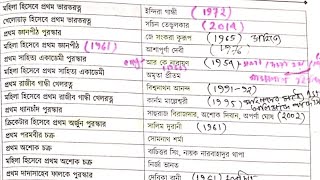 মহিলা হিসেবে প্রথম ভারতরত্ন ইন্দিরা গান্ধী (1972)
খেলোয়াড় হিসেবে প্রথম ভারতরত্ন সচিন তেন্ডুলকার (2014)
প্রথম জ্ঞানপীঠ পুরস্কার জে সংকরা কুরূপ (1965)
মহিলা হিসেবে প্রথম জ্ঞানপীঠ (1961) আশাপূর্ণা দেবী 1976
প্রথম সাহিত্য একাডেমী পুরস্কার আর কে নারায়ণ (1954)
মহিলা হিসেবে প্রথম সাহিত্য একাডেমী অমৃতা প্রীতম
প্রথম রাজীব গান্ধী খেলরত্ন বিশ্বনাথন আনন্দ (1991-92)
মহিলা হিসেবে প্রথম রাজীব গান্ধী খেলরত্ন কার্নাম মালেশ্বরী (1995)
প্রথম ধ্যানচাঁদ পুরস্কার সাহুরাজ বিরাজদার, অশোক দিবান, অপর্ণা ঘোষ (2002)
ক্রিকেটার হিসেবে প্রথম অর্জুন পুরস্কার সালিম দুরানী (1961)
প্রথম পরমবীর চক্র সোমনাথ শর্মা
প্রথম অশোক চক্র বাচিত্তর সিং, নায়ক নারবাহাদুর থাপা
মহিলা হিসেবে প্রথম অশোক চক্র নির্জা ভানত
প্রথম দাদাসাহেব ফালকে পুরস্কার দেবিকা রানী